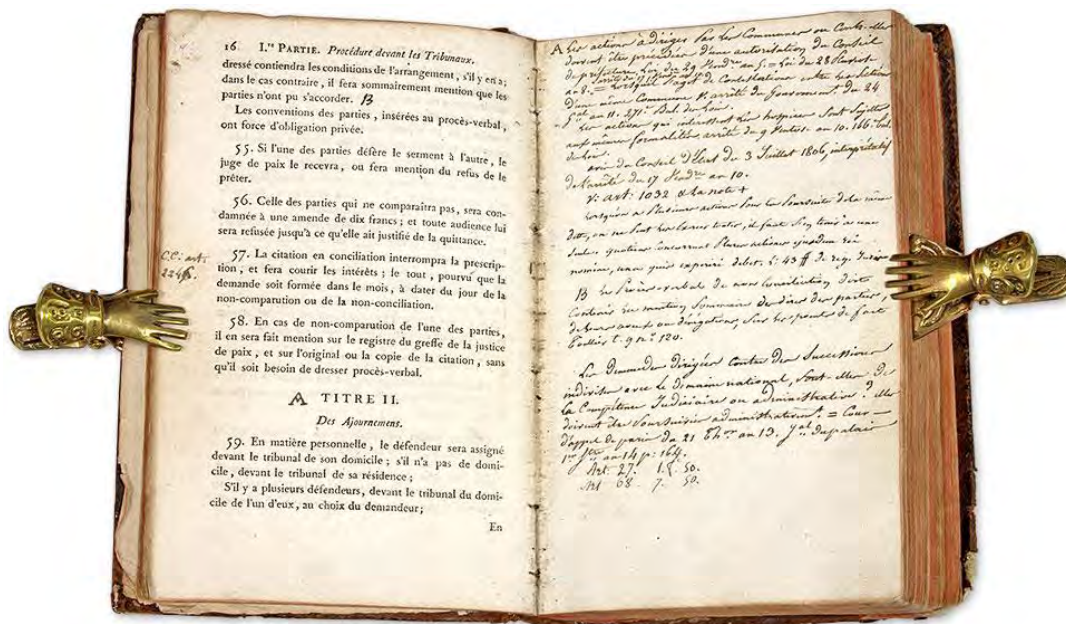 16. I.re PARTIE. Procédure devant les Tribunaux.
dressé contiendra les conditions de l'arrangement, s'il y en a;
dans le cas contraire, il fera sommairement mention que les
parties n'ont pu s'accorder. B
Les conventions des parties, insérées au procès-verbal,
ont force d'obligation privée.
55. Si l'une des parties défère le serment à l'autre, le
juge de paix le recevra, ou fera mention du refus de le
prêter.
56. Celle des parties qui ne comparaîtra pas, sera con-
damnée à une amende de dix francs; et toute audience lui
sera refusée jusqu'à ce qu'elle ait justifié de la quittance.
C.C. art.
57. La citation en conciliation interrompra la prescrip-
tion, et fera courir les intérêts; le tout, pourvu que la
demande soit formée dans le mois, à dater du jour de la
non-comparution ou de la non-conciliation.
58. En cas de non-comparution de l'une des parties,
il en sera fait mention sur le registre du greffe de la justice
de paix, et sur l'original ou la copie de la citation, sans
qu'il soit besoin de dresser procès-verbal.
A TITRE II.
Des Ajournemens.
59. En matière personnelle, le défendeur sera assigné
devant le tribunal de son domicile; s'il n'a pas de domi-
cile, devant le tribunal de sa résidence;
S'il y a plusieurs défendeurs, devant le tribunal du domi-
cile de l'un d'eux, au choix du demandeur;
En
A Les actions à diriger par les Communes ou contr'elles
doivent être précédées d'une autorisation du Conseil
de préfecture Loi du 29 = Loi du 28
an 8. = de Contestations entre
d'une même Commune V. arrêté du gouvernement du 24
an 11. 271e
Les actions qui intéressent les hospices sont sujettes
aux mêmes formalités arrêté du 9 an 10. 166.
avis du Conseil d'État du 3 Juillet 1806, interprétatif
de l'arrêté du 17 an 10.
V. art. 1032 & la note +
pour la poursuite de la même
dette, il faut s'en tenir à une
seule. quotiens concurrunt plures actiones ejusdem rei
nomine, una quis experiri debet. L. 43 ff de reg. juris
B Le Procès-verbal de non Conciliation doit
Contenir en mention Sommaire des dires des parties,
de leurs aveux ou dénégations, sur les points de fait
t. 9 n.o 120.
Les demandes dirigées contre des Successions
indivises avec le domaine national, sont-elles de
la Compétence Judiciaire ou administrative? elles
doivent être poursuivies administrativement = Cour
d'appel de paris du 21 an 13. Jal. du palais
1er an 14 p. 164.
Art. 27. 1. 50.
Art 68 7. 50.